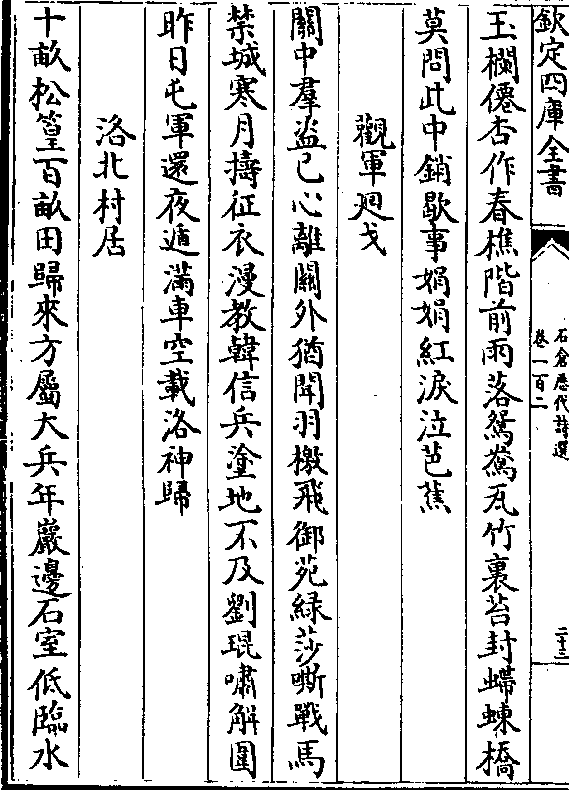 欽定四庫全書
石倉歷代詩選
卷一百二
二十三
玉欄僊杏作春樵階前雨落鴛鴦瓦竹裏苔封螮蝀橋
莫問此中銷歇事娟娟紅淚泣芭蕉
觀軍廻戈
關中羣盜已心離關外猶聞羽檄飛御苑緑莎嘶戰馬
禁城寒月擣征衣漫教韓信兵塗地不及劉琨嘯解圍
昨日屯軍還夜遁滿車空載洛神歸
洛北村居
十畝松篁百畝田歸來方屬大兵年巖邊石室低臨水